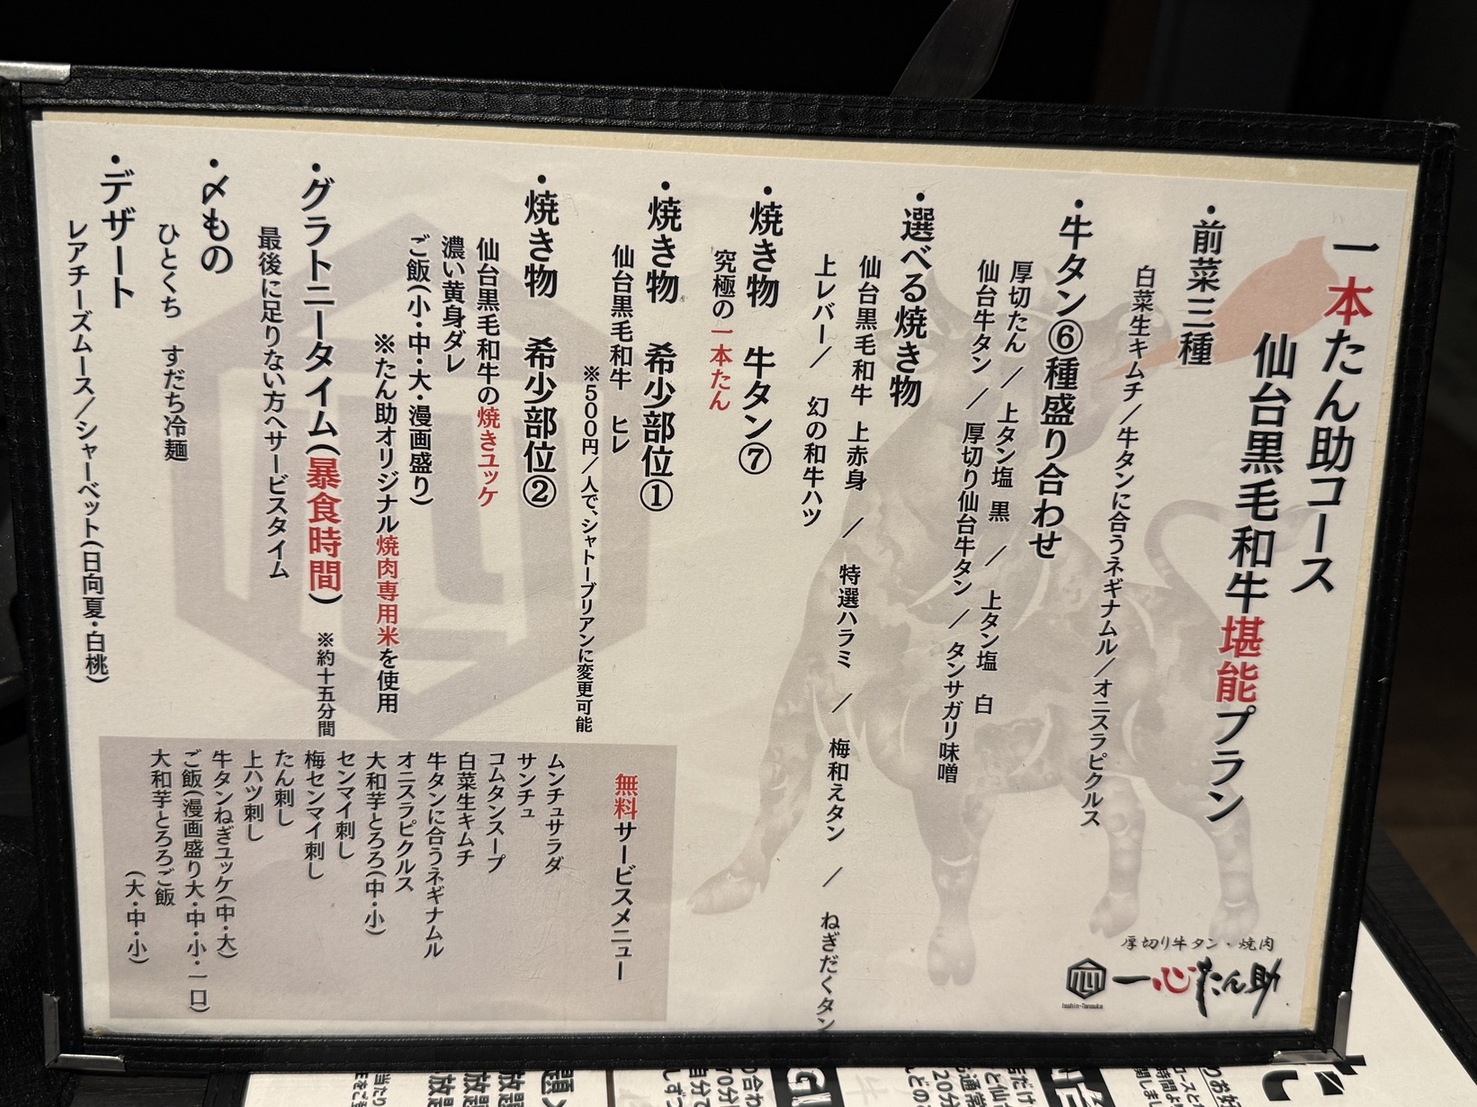 一本たん助コース
仙台黒毛和牛堪能プラン
・前菜三種
白菜生キムチ／牛タンに合うネギナムル／オニスラピクルス
・牛タン⑥種盛り合わせ
厚切たん ／ 上タン塩 黒 ／ 上タン塩 白
仙台牛タン ／ 厚切り仙台牛タン ／ タンサガリ味噌
・選べる焼き物
仙台黒毛和牛 上赤身 ／ 特選ハラミ ／ 梅和えタン ／ ねぎだくタン
上レバー／ 幻の和牛ハツ
・焼き物 牛タン⑦
究極の一本たん
・焼き物 希少部位①
仙台黒毛和牛 ヒレ
※500円／人で、シャトーブリアンに変更可能
・焼き物 希少部位②
仙台黒毛和牛の焼きユッケ
濃い黄身ダレ
ご飯(小・中・大・漫画盛り)
※たん助オリジナル焼肉専用米を使用
・グラトニータイム(暴食時間) ※約十五分間
最後に足りない方へサービスタイム
・〆もの
ひとくち すだち冷麺
・デザート
レアチーズムース／シャーベット(日向夏・白桃)
無料サービスメニュー
ムンチュサラダ
サンチュ
コムタンスープ
白菜生キムチ
牛タンに合うネギナムル
オニスラピクルス
大和芋とろろ(中・小)
センマイ刺し
梅センマイ刺し
たん刺し
上ハツ刺し
牛タンねぎユッケ(中・大)
ご飯(漫画盛り大・中・小・一口)
大和芋とろろご飯
(大・中・小)
厚切り牛タン・焼肉
一心たん助
Isshin-Tansuke